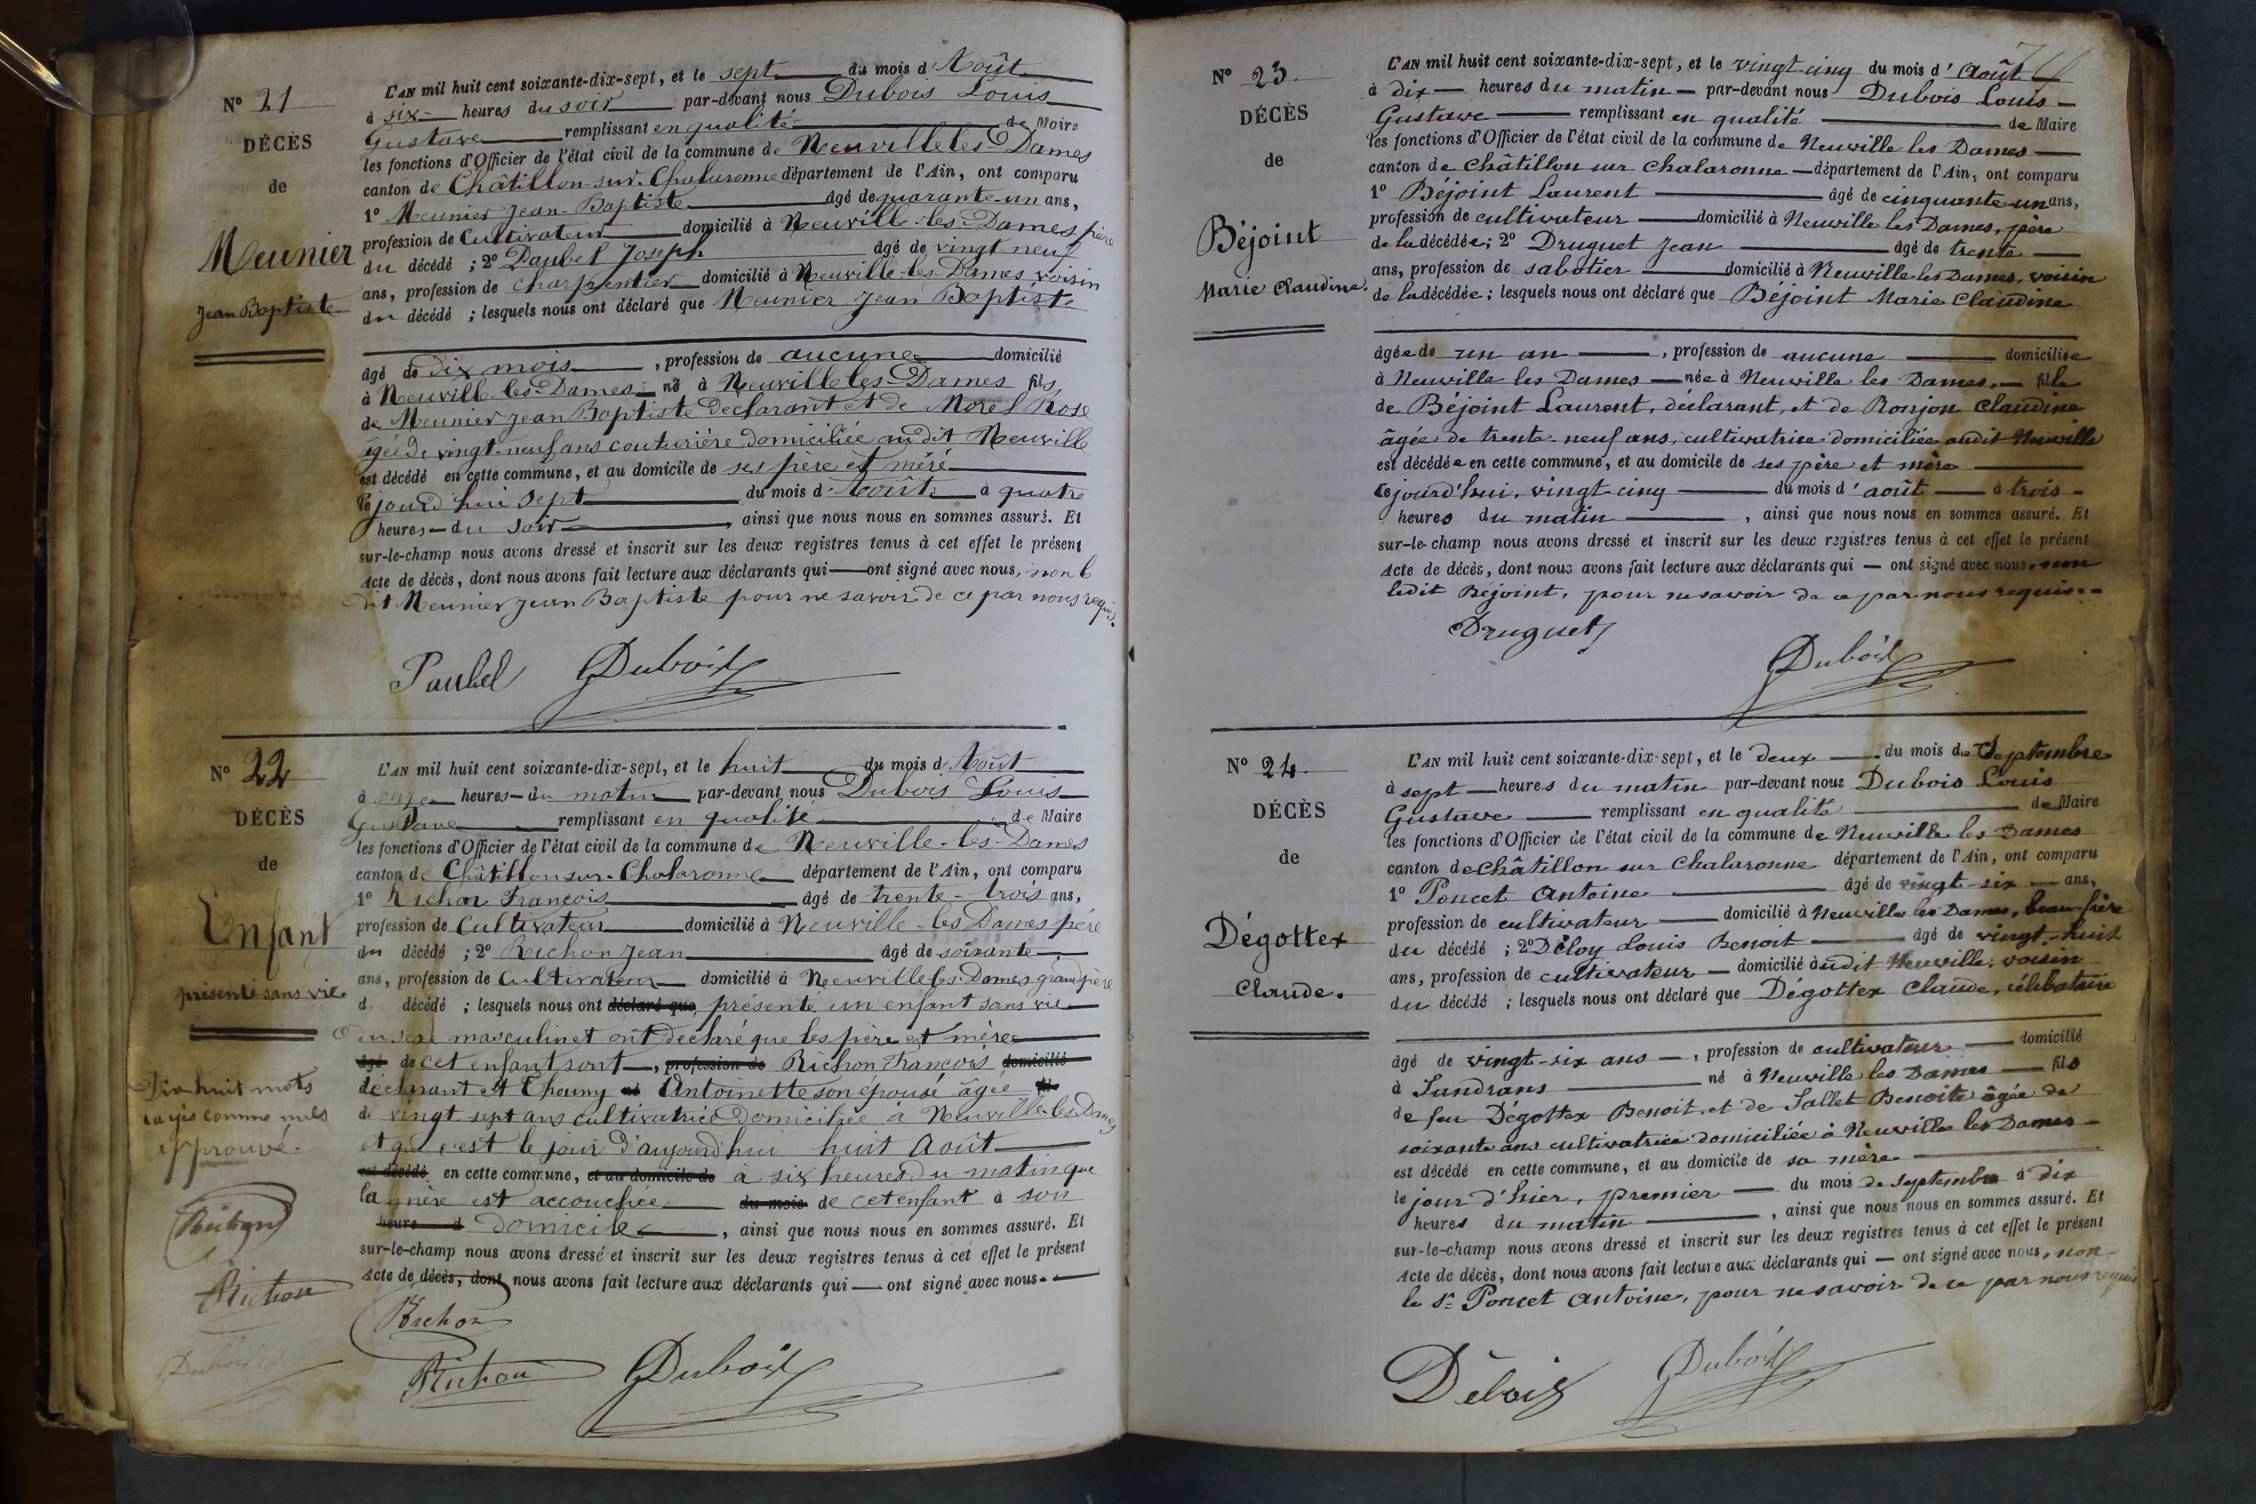 N° 21
DÉCÈS
de
Meunier
Jean Baptiste
L'AN mil huit cent soixante-dix-sept, et le sept du mois d'Août
à six heures du soir par-devant nous Dubois Louis
Gustave remplissant en qualité de Maire
les fonctions d'Officier de l'état civil de la commune de Neuville les Dames
canton de Châtillon-sur-Chalaronne département de l'Ain, ont comparu
1° Meunier Jean-Baptiste âgé de quarante-un ans,
profession de Cultivateur domicilié à Neuville-les-Dames père
du décédé ; 2° Paubel Joseph âgé de vingt neuf
ans, profession de charpentier domicilié à Neuville-les-Dames voisin
du décédé ; lesquels nous ont déclaré que Meunier Jean Baptiste
âgé de dix mois, profession de aucune domicilié
à Neuville-les-Dames né à Neuville les Dames fils
de Meunier Jean Baptiste déclarant et de Morel Rose
âgée de vingt-neuf ans couturière domiciliée au dit Neuville
est décédé en cette commune, et au domicile de ses père et mère
ce jourd'hui sept du mois d'Août à quatre
heures du soir, ainsi que nous nous en sommes assuré. Et
sur-le-champ nous avons dressé et inscrit sur les deux registres tenus à cet effet le présent
Acte de décès, dont nous avons fait lecture aux déclarants qui — ont signé avec nous, non le
dit Meunier Jean Baptiste pour ne savoir de ce par nous requis.
Paubel Dubois
N° 22
DÉCÈS
de
Enfant
présenté sans vie
L'AN mil huit cent soixante-dix-sept, et le huit du mois d'Août
à heures du matin par-devant nous Dubois Louis
Gustave remplissant en qualité de Maire
les fonctions d'Officier de l'état civil de la commune de Neuville-les-Dames
canton de Châtillon-sur-Chalaronne département de l'Ain, ont comparu
1° Richon François âgé de trente-trois ans,
profession de Cultivateur domicilié à Neuville-les-Dames père
du décédé ; 2° Richon Jean âgé de soixante
ans, profession de Cultivateur domicilié à Neuville les Dames grand père
d décédé ; lesquels nous ont déclaré que présenté un enfant sans vie
du sexe masculin et ont déclaré que les père et mère
âgé de cet enfant sont, profession de Richon François domicilié
déclarant et Antoinette son épouse âgée
de vingt sept ans cultivatrice domiciliée à Neuville-les-Dames
et que c'est le jour d'aujourd'hui huit Août
est décédé en cette commune, et au domicile de à six heures du matin que
la mère est accouchée du mois de cet enfant à son
heure d domicile, ainsi que nous nous en sommes assuré. Et
sur-le-champ nous avons dressé et inscrit sur les deux registres tenus à cet effet le présent
Acte de décès, dont nous avons fait lecture aux déclarants qui — ont signé avec nous.
Dix huit mots
rayés comme nuls
approuvé.
Richon
Richon
Dubois
Richon
Richon Dubois
N° 23.
DÉCÈS
de
Béjoint
Marie Claudine.
L'AN mil huit cent soixante-dix-sept, et le vingt-cinq du mois d'août
à dix — heures du matin — par-devant nous Dubois Louis
Gustave remplissant en qualité de Maire
les fonctions d'Officier de l'état civil de la commune de Neuville les Dames
canton de Châtillon sur Chalaronne — département de l'Ain, ont comparu
1° Béjoint Laurent âgé de cinquante-un ans,
profession de cultivateur domicilié à Neuville les Dames, père
de la décédée ; 2° Druguet Jean âgé de trente
ans, profession de sabotier domicilié à Neuville les Dames, voisin
de la décédée ; lesquels nous ont déclaré que Béjoint Marie Claudine
âgée de un an, profession de aucune domiciliée
à Neuville les Dames — née à Neuville les Dames, — fille
de Béjoint Laurent, déclarant, et de Ronjon Claudine
âgée de trente-neuf ans, cultivatrice domiciliée audit Neuville
est décédée en cette commune, et au domicile de ses père et mère
cejourd'hui, vingt-cinq du mois d'août — à trois
heures du matin, ainsi que nous nous en sommes assuré. Et
sur-le-champ nous avons dressé et inscrit sur les deux registres tenus à cet effet le présent
Acte de décès, dont nous avons fait lecture aux déclarants qui — ont signé avec nous, non
ledit Béjoint, pour ne savoir de ce par nous requis.
Druguet
Dubois
N° 24.
DÉCÈS
de
Dégottex
Claude.
L'AN mil huit cent soixante-dix-sept, et le deux du mois de Septembre
à sept — heures du matin par-devant nous Dubois Louis
Gustave remplissant en qualité de Maire
les fonctions d'Officier de l'état civil de la commune de Neuville les Dames
canton de Châtillon sur Chalaronne département de l'Ain, ont comparu
1° Poncet Antoine âgé de vingt-six — ans,
profession de cultivateur domicilié à Neuville les Dames, beau-frère
du décédé ; 2° Déloy Louis Benoit âgé de vingt-huit
ans, profession de cultivateur — domicilié audit Neuville, voisin
du décédé ; lesquels nous ont déclaré que Dégottex Claude, célibataire
âgé de vingt-six ans —, profession de cultivateur domicilié
à Sandrans né à Neuville les Dames — fils
de feu Dégottex Benoit, et de Sallet Benoite âgée de
soixante ans cultivatrice domiciliée à Neuville les Dames
est décédé en cette commune, et au domicile de sa mère
le jour d'hier, premier — du mois de septembre à dix
heures du matin, ainsi que nous nous en sommes assuré. Et
sur-le-champ nous avons dressé et inscrit sur les deux registres tenus à cet effet le présent
Acte de décès, dont nous avons fait lecture aux déclarants qui — ont signé avec nous, non
le Sr Poncet Antoine, pour ne savoir de ce par nous requis
Dubois